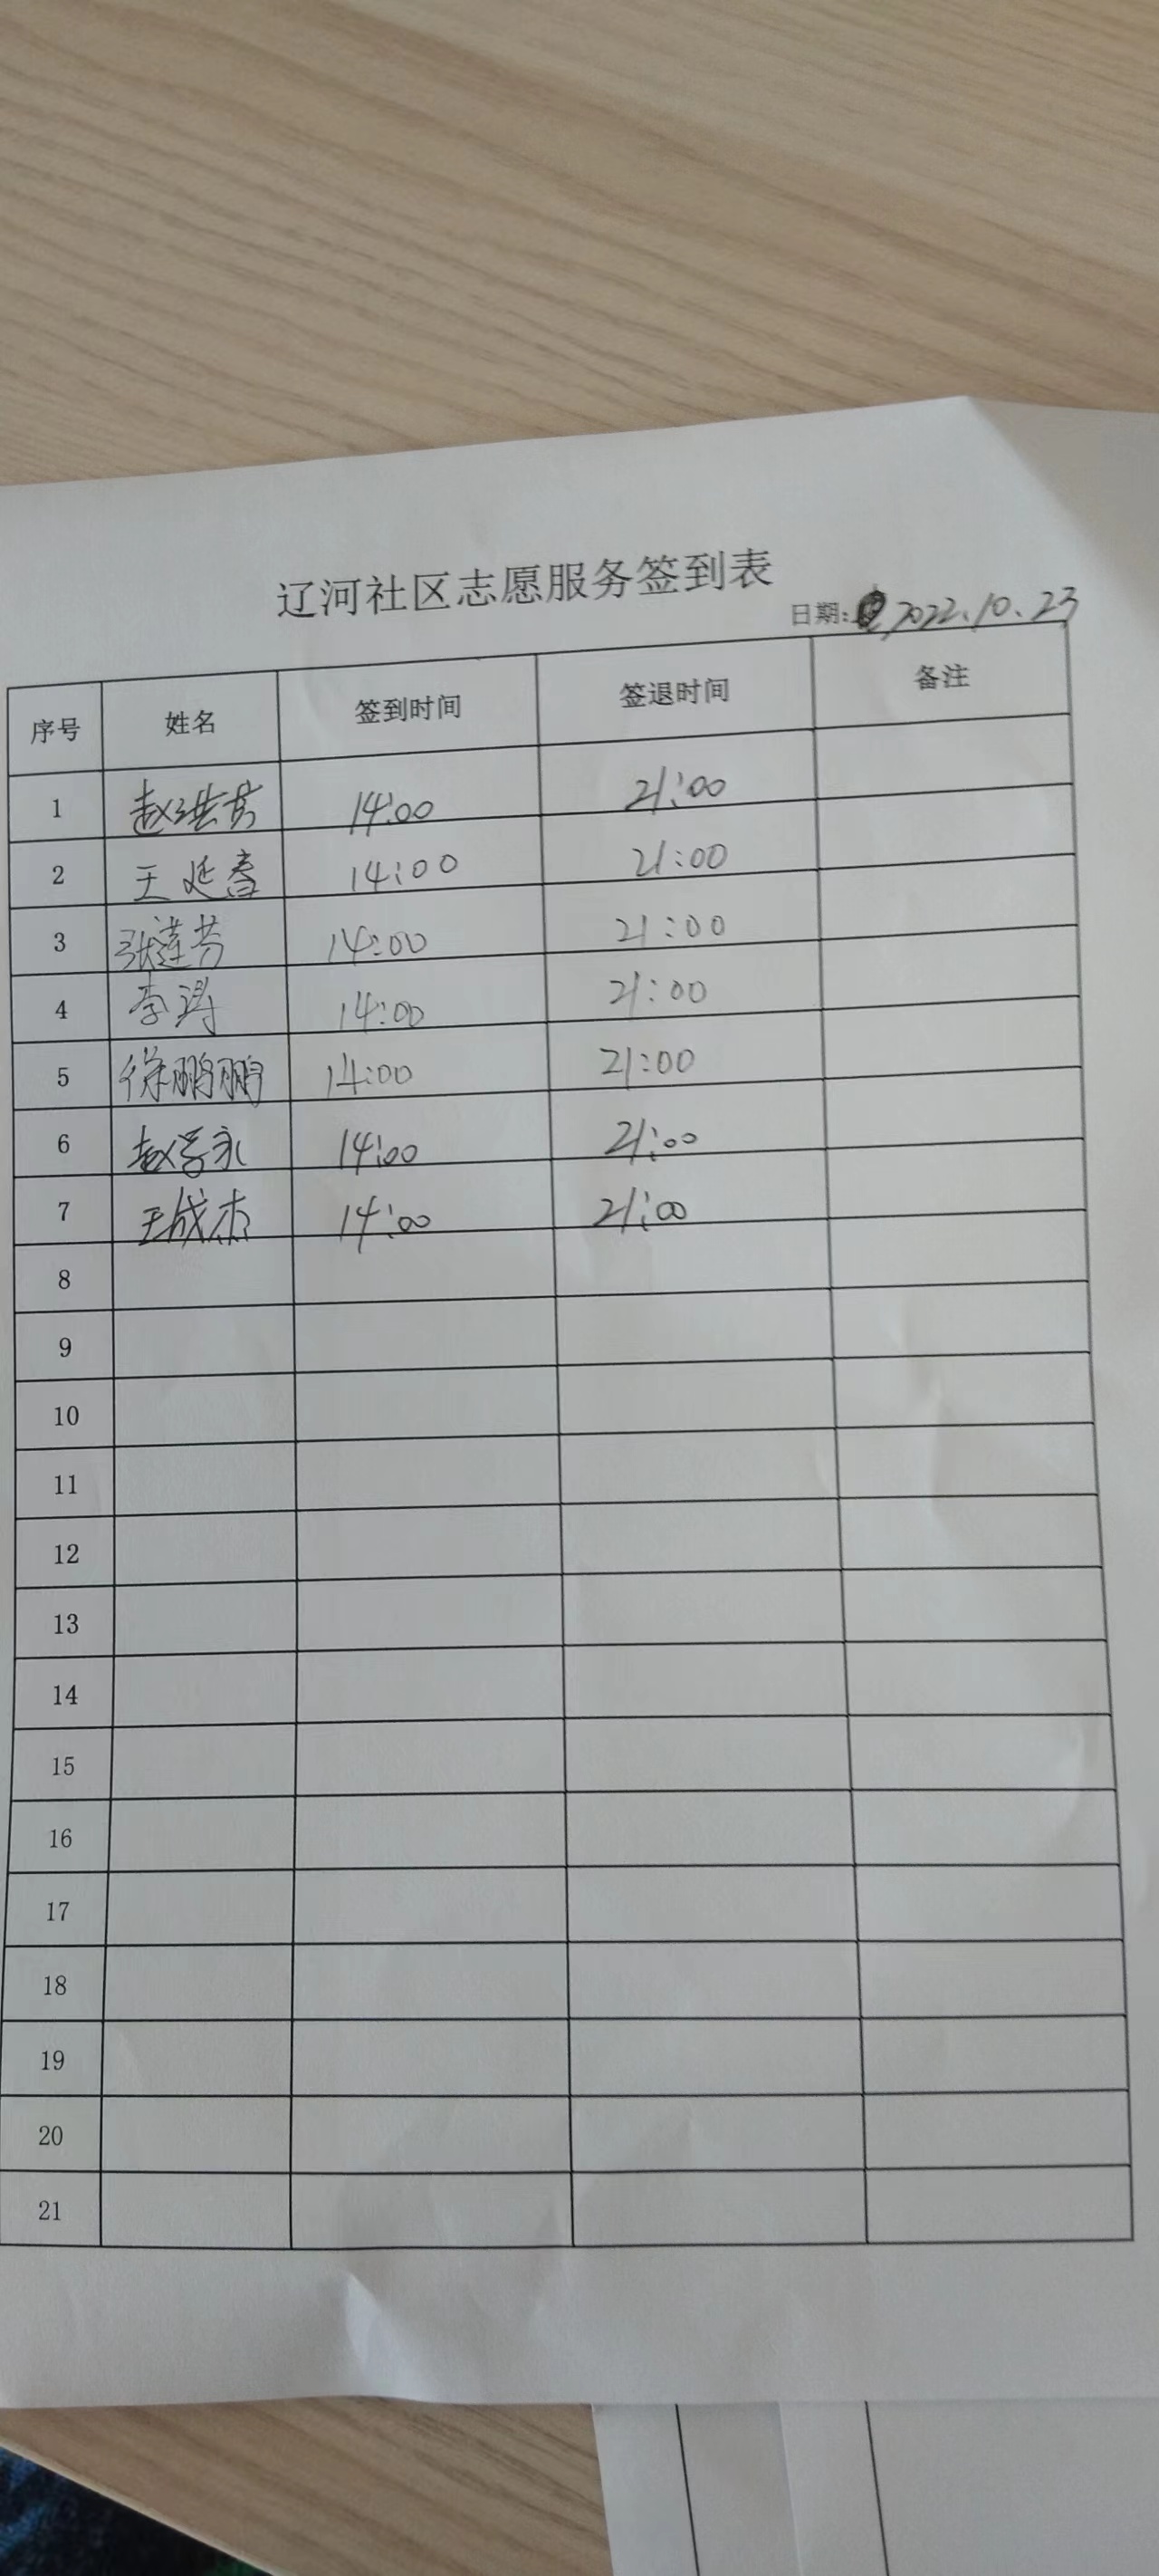 辽河社区志愿服务签到表
日期: 2022.10.23
序号 姓名 签到时间 签退时间 备注
1 赵洪芳 14:00 21:00
2 王延春 14:00 21:00
3 张莲芳 14:00 21:00
4 李涛 14:00 21:00
5 徐鹏鹏 14:00 21:00
6 赵学永 14:00 21:00
7 王成杰 14:00 21:00
8
9
10
11
12
13
14
15
16
17
18
19
20
21